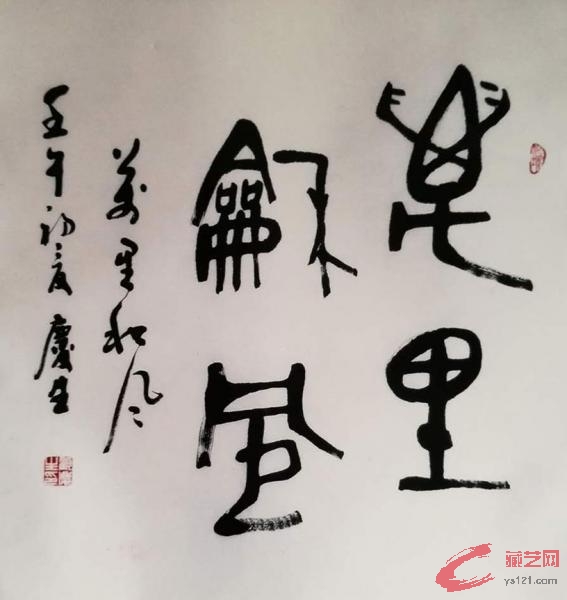 萬里
龢風
萬里和风
壬午初夏 慶生
藏艺网
ys121.com